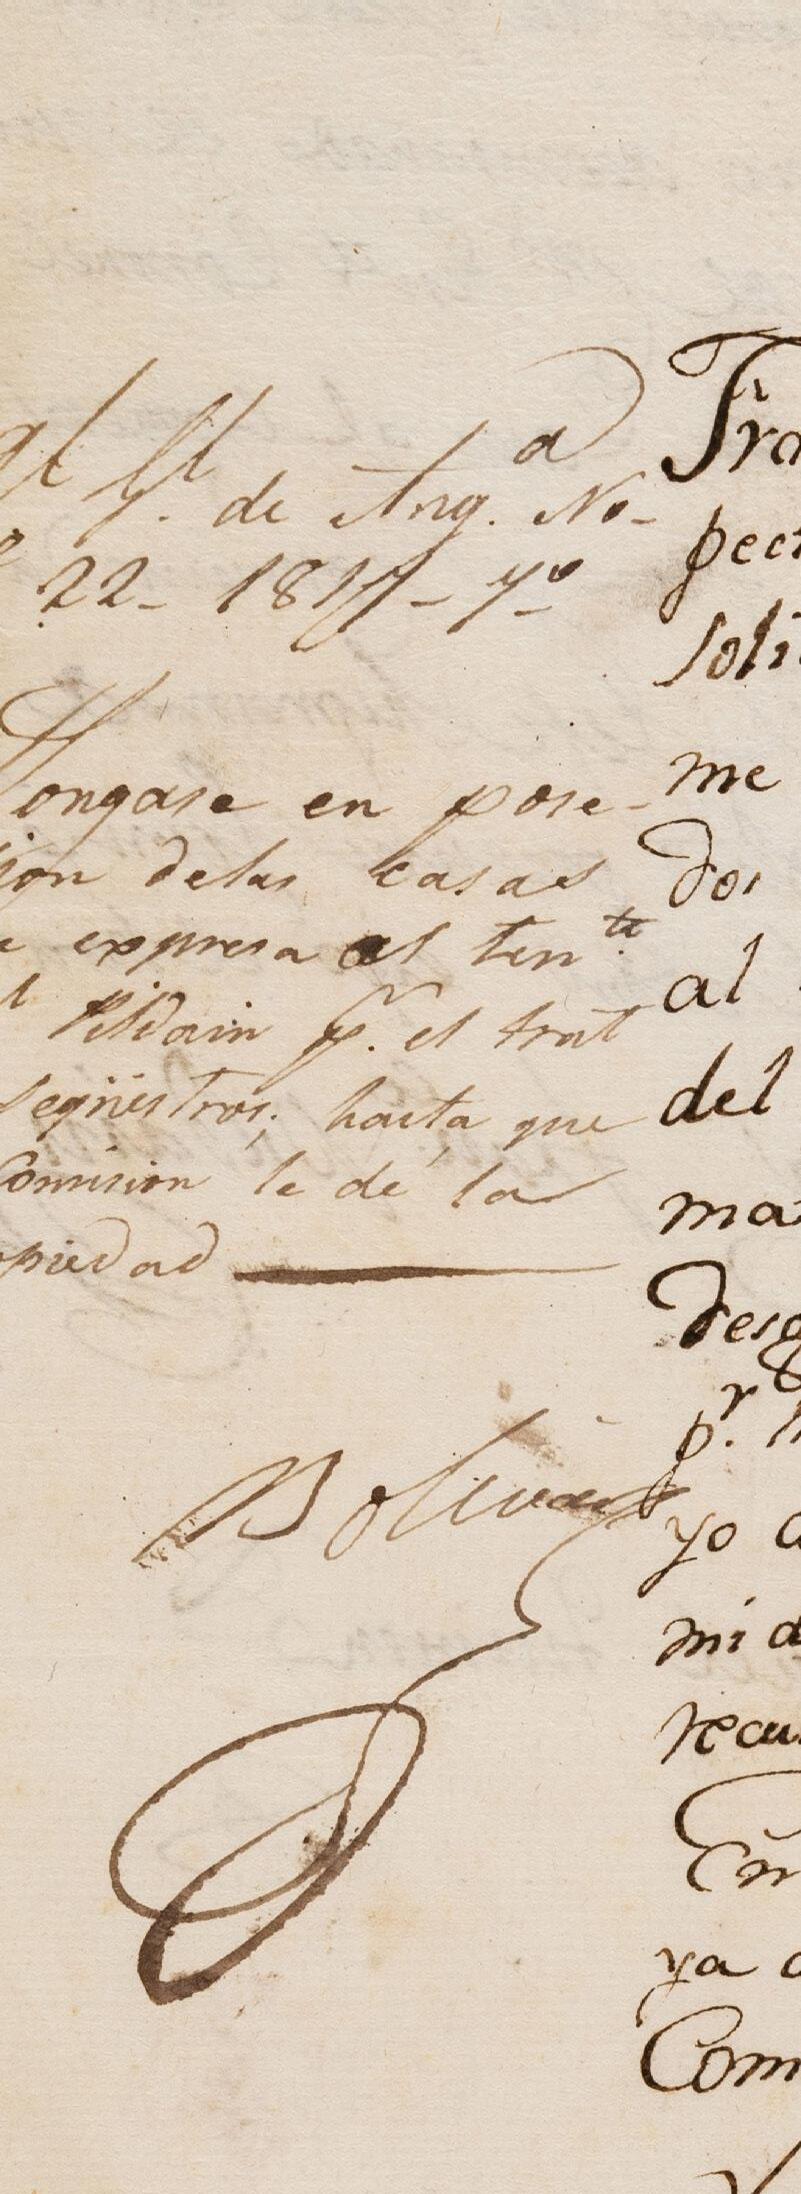 gl Gl. de Ang.a No-
e 22_ 1817_ 7º
Pongase en pose-
sion delas casas
e expresa al tente.
l Pildain pr. el trat
seqüestros, hasta que
Comision le dé la
opiedad
Bolivar
Fra
pect
soli
me
dos
al
del
ma
desg
pr.
yo a
mi d
recu
En
ya
Com